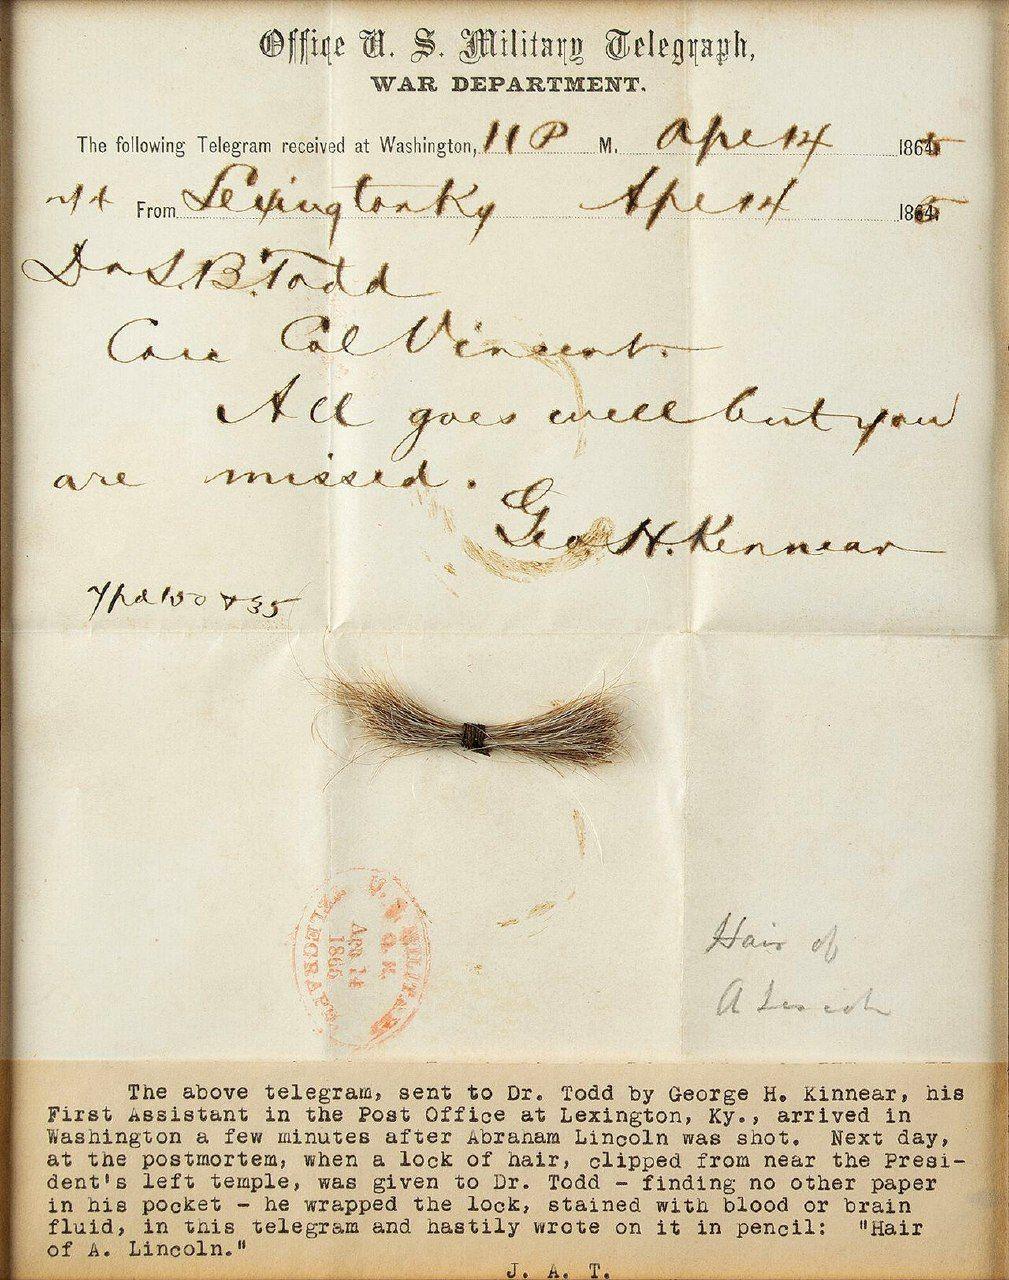 Office U. S. Military Telegraph,
WAR DEPARTMENT.
The following Telegram received at Washington, 11 P M. Apr 14 1865
From Lexington Ky Apr 14 1865
Dr L. B. Todd
Care Col Vincent.
All goes well but you
are missed.
Geo. H. Kinnear
Hair of
A Lincoln
U. S. MILITARY
TELEGRAPH
APR 14
1865
The above telegram, sent to Dr. Todd by George H. Kinnear, his
First Assistant in the Post Office at Lexington, Ky., arrived in
Washington a few minutes after Abraham Lincoln was shot. Next day,
at the postmortem, when a lock of hair, clipped from near the Presi-
dent's left temple, was given to Dr. Todd - finding no other paper
in his pocket - he wrapped the lock, stained with blood or brain
fluid, in this telegram and hastily wrote on it in pencil: "Hair
of A. Lincoln."
J. A. T.